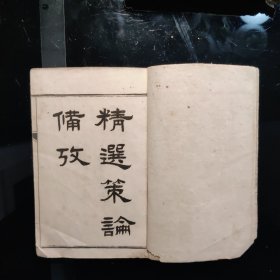 精選策論
備攷